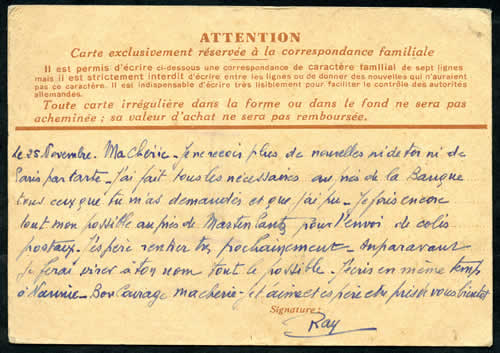 ATTENTION
Carte exclusivement réservée à la correspondance familiale
Il est permis d'écrire ci-dessous une correspondance de caractère familial de sept lignes
mais il est strictement interdit d'écrire entre les lignes ou de donner des nouvelles qui n'auraient
pas ce caractère. Il est indispensable d'écrire très lisiblement pour faciliter le contrôle des autorités
allemandes.
Toute carte irrégulière dans la forme ou dans le fond ne sera pas
acheminée ; sa valeur d'achat ne sera pas remboursée.
Le 25 Novembre. Ma Chérie - Je ne reçois plus de nouvelles ni de toi ni de
Paris par carte - J'ai fait tous les nécessaires au de la Banque
tous ceux que tu m'as demandés et que j'ai pu - Je fais encore
tout mon possible auprès de pour l'envoi de colis
postaux. J'espère rentrer très prochainement - Auparavant
je ferai virer à ton nom tout le possible. J'écris en même temps
à - Bon Courage ma cherie - Je t'aime et espère être près de vous bientôt
Signature :
Ray